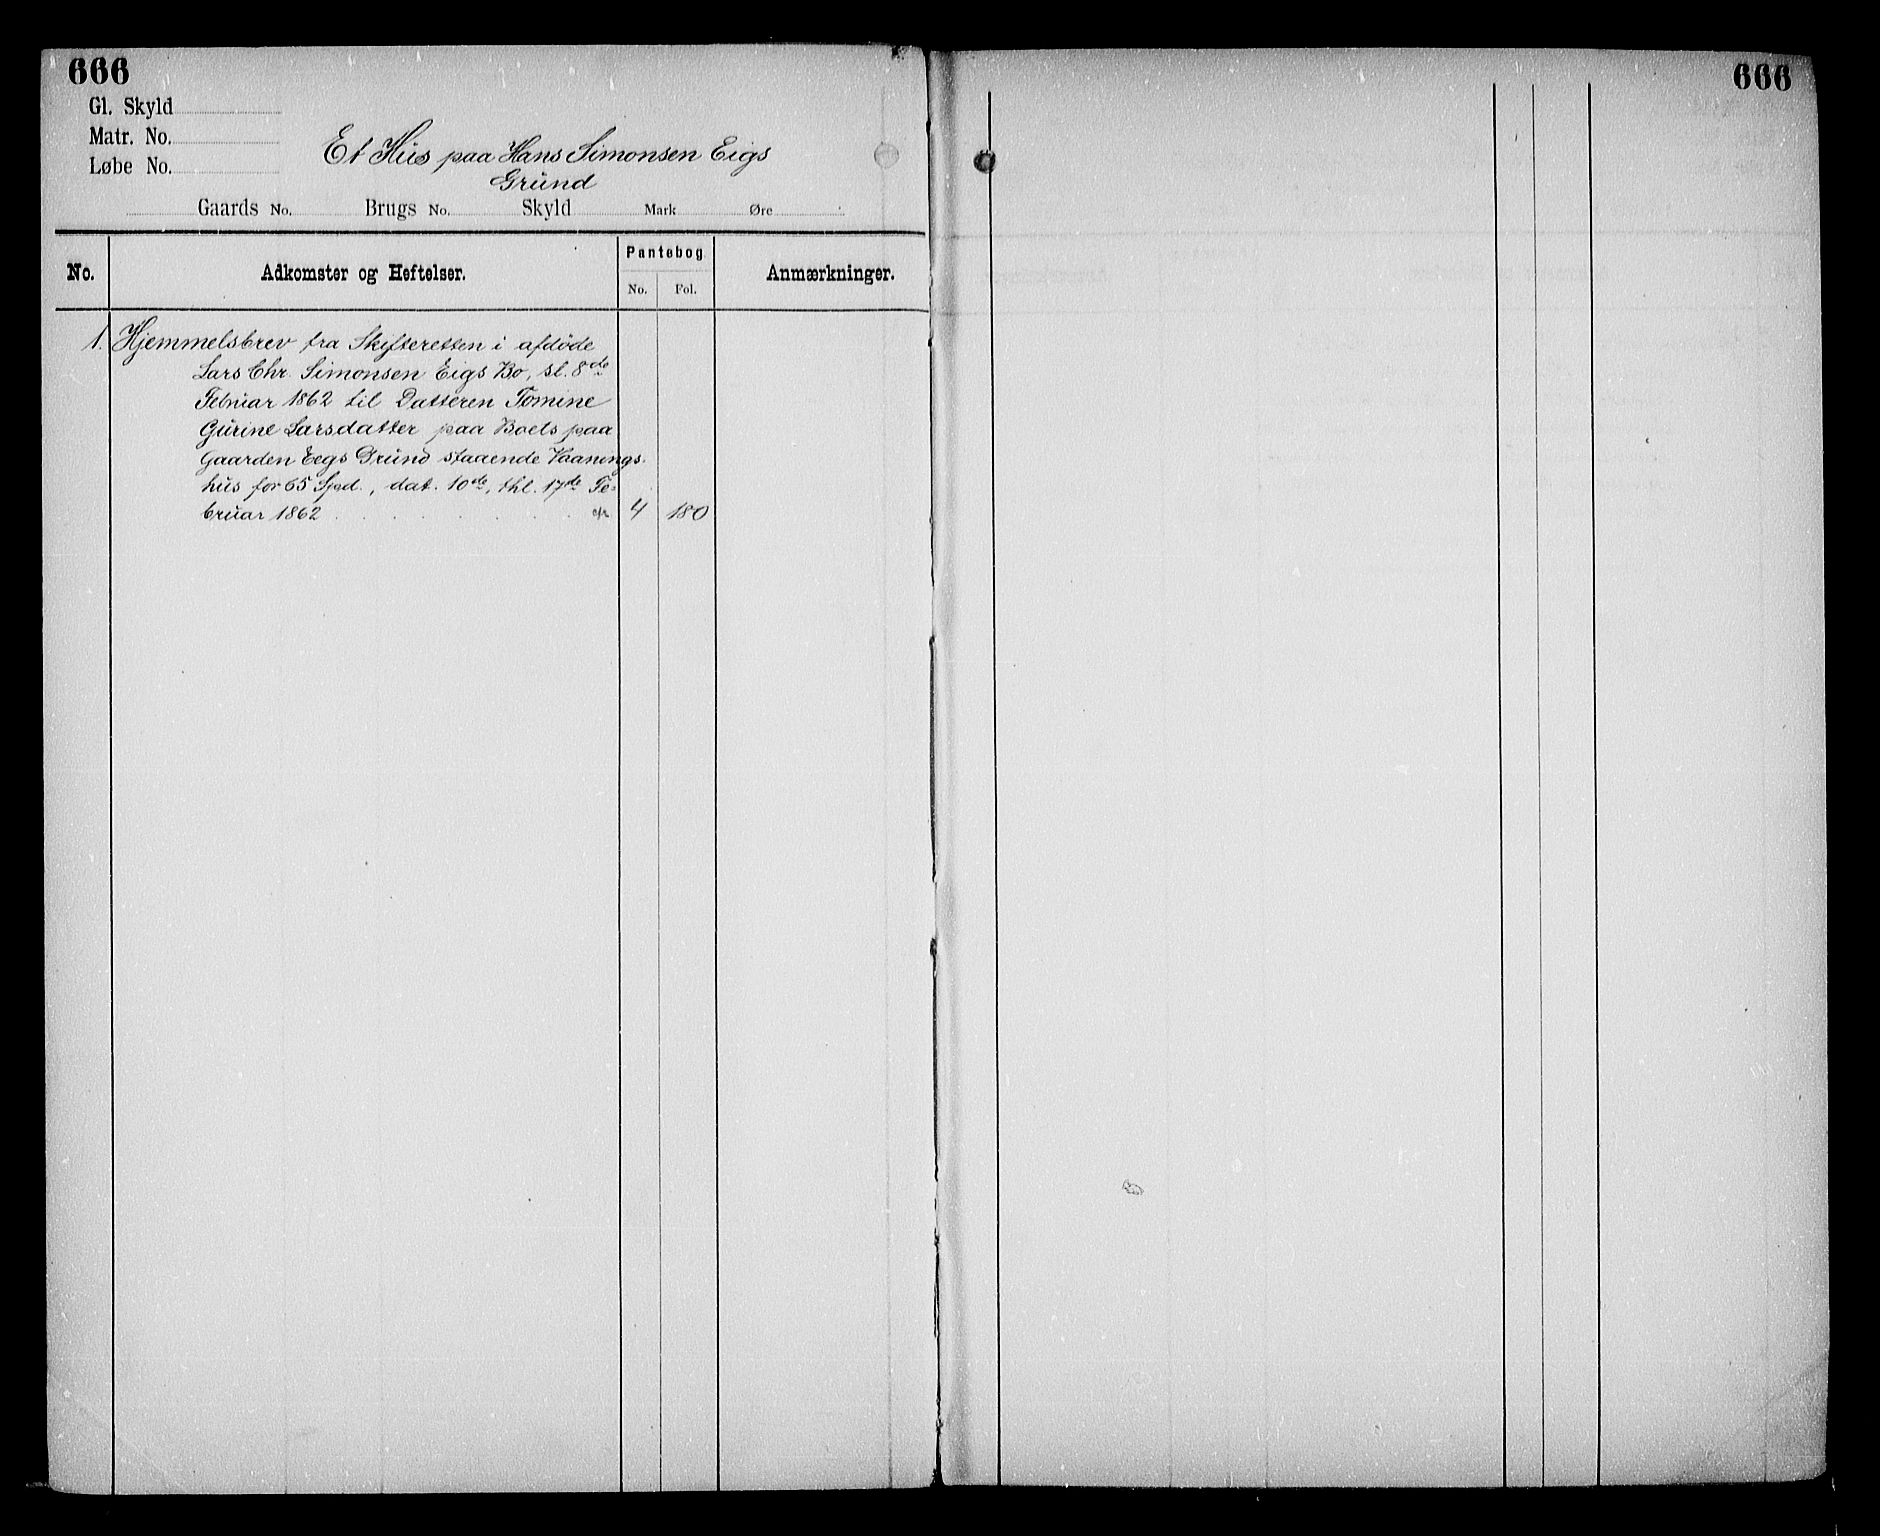 666
666
Gl. Skyld
Matr. No.
Løbe No.
Et Hus paa Hans Simonsen Eigs
Grund
Gaards No. Brugs No. Skyld Mark Øre
No. Adkomster og Heftelser. Pantebog Anmærkninger.
No. Fol.
1. Hjemmelsbrev fra Skifteretten i afdøde
Lars Chr. Simonsen Eigs Bo, sl. 8de
Februar 1862 til Datteren Tomine
Gurine Larsdatter paa Boets paa
Gaarden Eegs Grund staaende Vaanings-
hus for 65 Spd., dat. 10de, thl. 17de Fe-
bruar 1862 . . . . . . . . 4 180